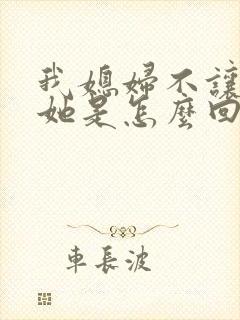 我媳婦不讓
她是怎麼回
車長波